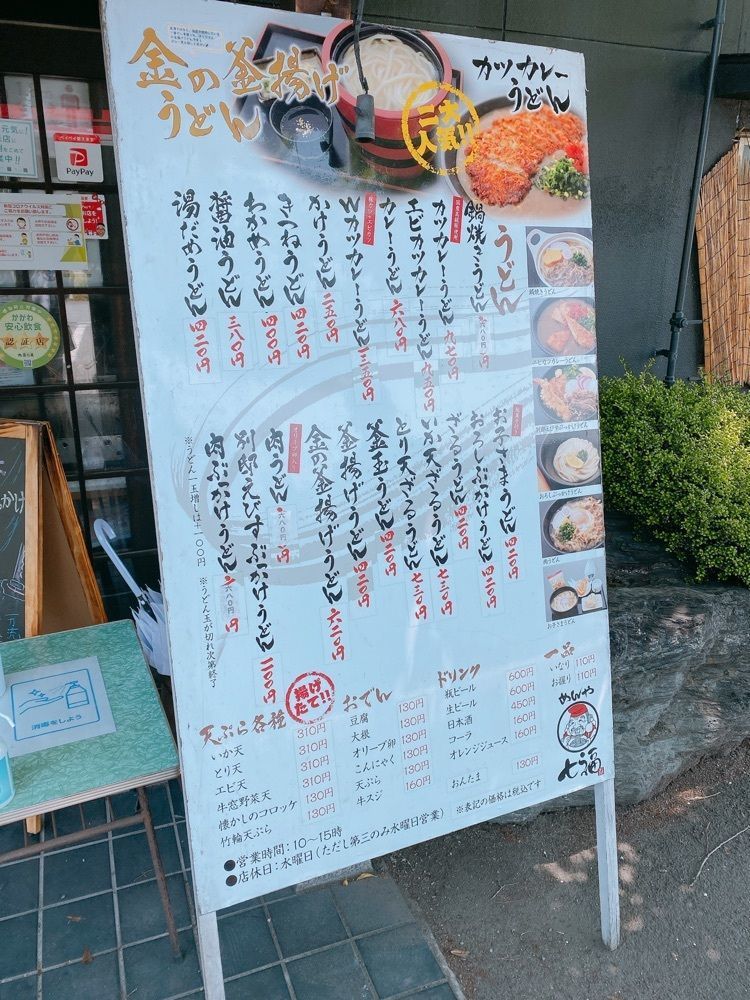 金の釜揚げ
うどん
二大
人気!!
カツカレー
うどん
うどん
鍋焼きうどん 六八〇円
カツカレーうどん 九七〇円
エビカツカレーうどん 九五〇円
カレーうどん 六八〇円
Wカツカレーうどん 一三五〇円
かけうどん 二五〇円
きつねうどん 四二〇円
わかめうどん 四〇〇円
醤油うどん 三八〇円
湯だめうどん 四二〇円
お子さまうどん 四二〇円
おろしぶっかけうどん 四二〇円
ざるうどん 四二〇円
いか天ざるうどん 七三〇円
とり天ざるうどん 七三〇円
釜玉うどん 四二〇円
釜揚げうどん 四二〇円
金の釜揚げうどん 六二〇円
オリーブ卵入
肉うどん 六八〇円
別邸えびすぶっかけうどん 一一〇〇円
肉ぶっかけうどん 六八〇円
※うどん一玉増しは+一〇〇円
※うどん玉が切れ次第終了
鍋焼きうどん
エビカツカレーうどん
別邸えびすぶっかけうどん
おろしぶっかけうどん
肉うどん
お子さまうどん
天ぷら各種
揚げ
たて!!
いか天 310円
とり天 310円
エビ天 310円
牛窓野菜天 310円
懐かしのコロッケ 130円
竹輪天ぷら 130円
おでん
豆腐 130円
大根 130円
オリーブ卵 130円
こんにゃく 130円
天ぷら 130円
牛スジ 160円
ドリンク
瓶ビール 600円
生ビール 600円
日本酒 450円
コーラ 160円
オレンジジュース 160円
おんたま 130円
一品
いなり 110円
お握り 110円
めんや
七福
※表記の価格は税込です
●営業時間:10～15時
●店休日:水曜日(ただし第三のみ水曜日営業)
PayPay
かがわ
安心飲食
認証店
消毒をしよう